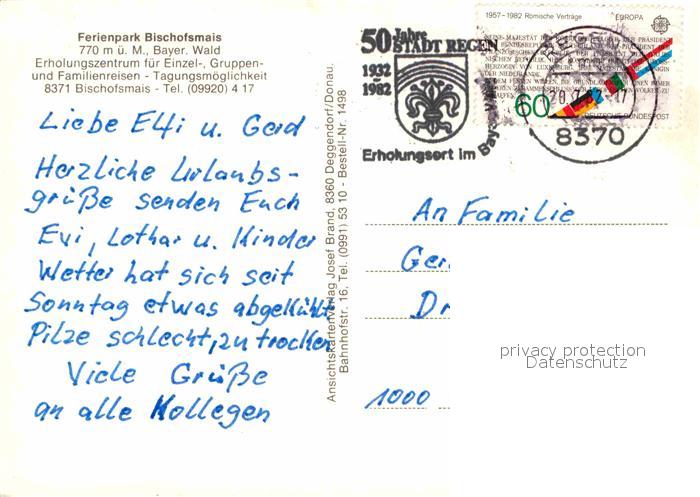 Ferienpark Bischofsmais
770 m ü. M., Bayer. Wald
Erholungszentrum für Einzel-, Gruppen-
und Familienreisen - Tagungsmöglichkeit
8371 Bischofsmais - Tel. (09920) 4 17
Liebe Elfi u. Gerd
Herzliche Urlaubs-
grüße senden Euch
Evi, Lothar u. Kinder
Wetter hat sich seit
Sonntag etwas abgekühlt
Pilze schlecht, zu trocken
Viele Grüße
an alle Kollegen
Ansichtskartenverlag Josef Brand, 8360 Deggendorf/Donau.
Bahnhofstr. 16, Tel. (0991) 53 10 - Bestell-Nr. 1498
50 Jahre
STADT REGEN
1932
1982
Erholungsort im Bayer.
1957-1982 Römische Verträge EUROPA
60
DEUTSCHE BUNDESPOST
8370
An Familie
Ger
Dr
1000
privacy protection
Datenschutz